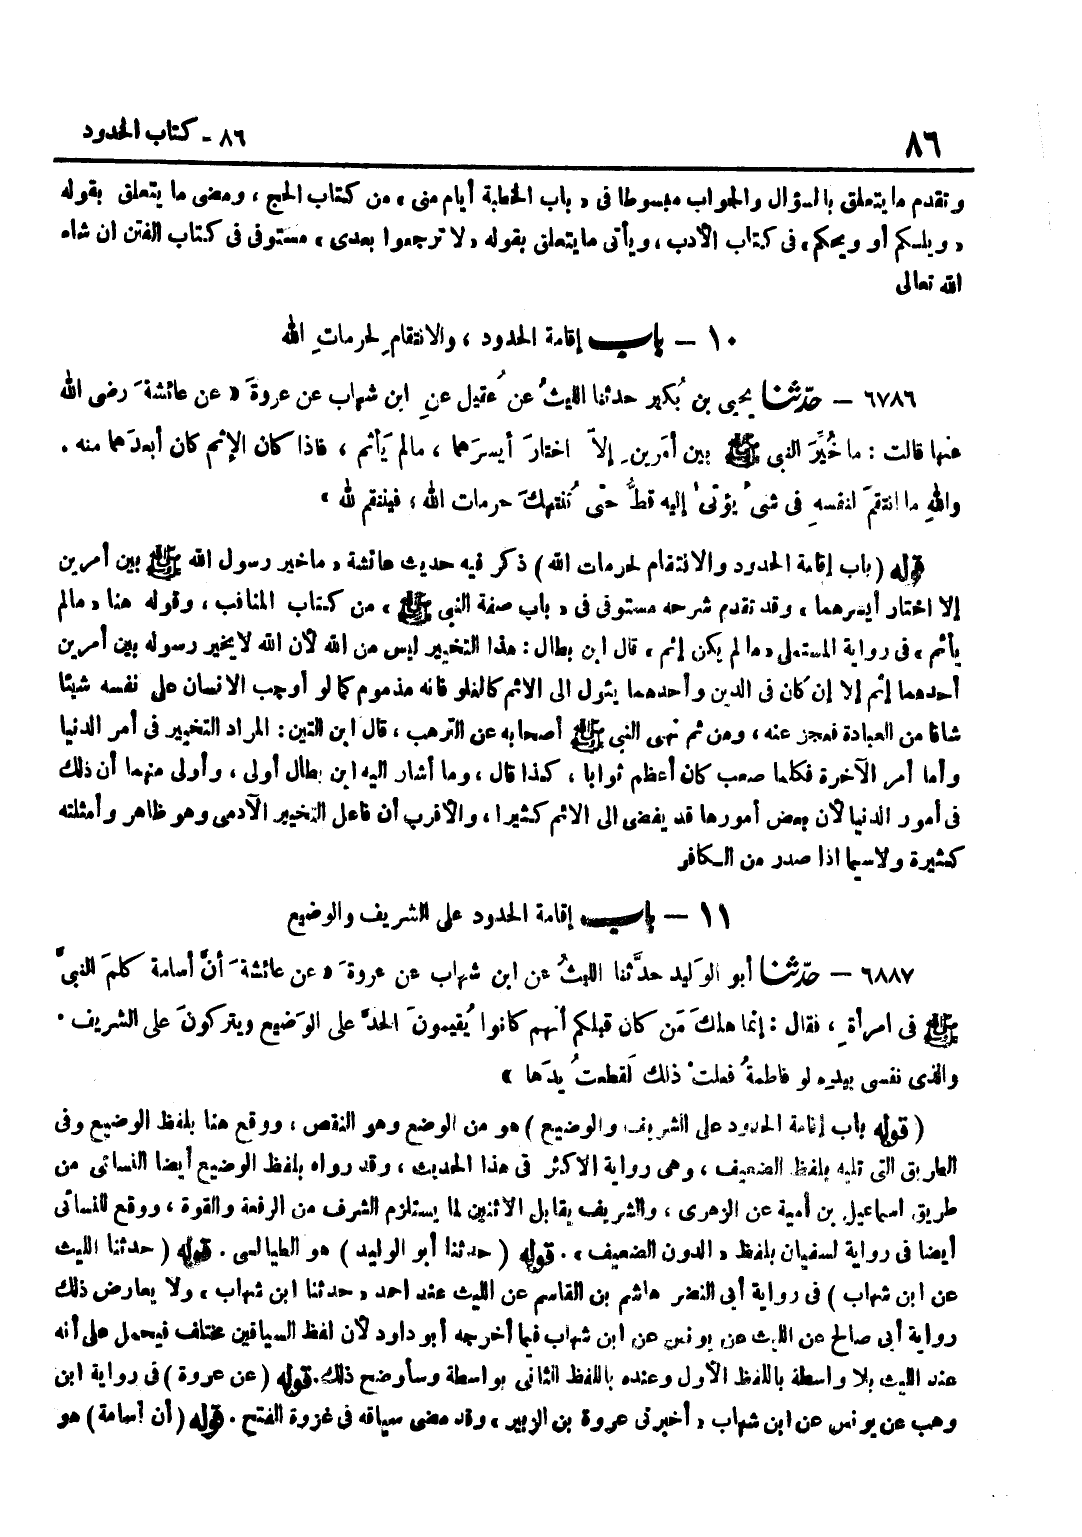 ٨٦
٨٦ - كتاب الحدود
وتقدم ما يتعلق بالسؤال والجواب مبسوطا فى « باب الخطبة أيام منى » من كتاب الحج ، ومضى ما يتعلق بقوله
« ويلكم أو ويحكم » فى كتاب الأدب ، ويأتى ما يتعلق بقوله « لا ترجعوا بعدى » مستوفى فى كتاب الفتن ان شاء
الله تعالى
١٠ - باب إقامة الحدود ، والانتقامِ لحرماتِ الله
٦٧٨٦ - حدّثنا يحيى بن بُكير حدثنا الليثُ عن عُقيل عنِ ابن شهاب عن عروةَ « عن عائشةَ رضى الله
عنها قالت : ما خُيِّرَ النبى ﷺ بين أمرَين ِ إلاّ اختارَ أيسرَهما ، مالم يَأثم ، فاذا كان الإثم كان أبعدَهما منه .
واللهِ ما انتقمَ لنفسهِ فى شىءٍ يؤتىٰ إليه قطُّ حتّى تُنتهكَ حرمات الله ، فينتقم لله »
قوله ( باب إقامة الحدود والانتقام لحرمات الله ) ذكر فيه حديث عائشة « ماخير رسول الله ﷺ بين أمرين
إلا اختار أيسرهما » وقد تقدم شرحه مستوفى فى « باب صفة النبى ﷺ » من كتاب المناقب ، وقوله هنا « مالم
يأثم » فى رواية المستملى « مالم يكن إثم » قال ابن بطال : هذا التخيير ليس من الله لأن الله لايخير رسوله بين أمرين
أحدهما إثم إلا إن كان فى الدين وأحدهما يئول الى الاثم كالغلو فانه مذموم كما لو أوجب الانسان على نفسه شيئا
شاقا من العبادة فعجز عنه ، ومن ثم نهى النبى ﷺ أصحابه عن الترهب ، قال ابن التين : المراد التخيير فى أمر الدنيا
وأما أمر الآخرة فكلما صعب كان أعظم ثوابا ، كذا قال ، وما أشار اليه ابن بطال أولى ، وأولى منهما أن ذلك
فى أمور الدنيا لأن بعض أمورها قد يفضى الى الاثم كثيرا ، والأقرب أن فاعل التخيير الآدمى وهو ظاهر وأمثلته
كثيرة ولاسيما اذا صدر من الكافر
١١ - باب إقامة الحدود على الشريف والوضيع
٦٨٨٧ - حدّثنا أبو الوَليد حدَّثنا الليثُ عن ابن شهاب عن عروةَ « عن عائشةَ أنَّ أسامة كلمَ النبىَّ
ﷺ فى امرأةٍ ، فقال : إنّما هلكَ مَن كان قبلكم أنهم كانوا يُقيمونَ الحدَّ على الوَضيع ويتركونَ على الشريف .
والذى نفسى بيده لو فاطمةُ فعلتْ ذلك لَقطعتُ يدَها »
( قوله باب إقامة الحدود على الشريف والوضيع ) هو من الوضع وهو النقص ، ووقع هنا بلفظ الوضيع وفى
الطريق التى تليه بلفظ الضعيف ، وهى رواية الاكثر فى هذا الحديث ، وقد رواه بلفظ الوضيع أيضا النسائى من
طريق اسماعيل بن أمية عن الزهرى ، والشريف يقابل الاثنين لما يستلزم الشرف من الرفعة والقوة ، ووقع للنسائى
أيضا فى رواية لسفيان بلفظ « الدون الضعيف » . قوله ( حدثنا أبو الوليد ) هو الطيالسى . قوله ( حدثنا الليث
عن ابن شهاب ) فى رواية أبى النضر هاشم بن القاسم عن الليث عند احمد « حدثنا ابن شهاب » ولا يعارض ذلك
رواية أبى صالح عن الليث عن يونس عن ابن شهاب فيما أخرجه أبو داود لأن لفظ السياقين مختلف فيحمل على أنه
عند الليث بلا واسطة باللفظ الأول وعنده باللفظ الثانى بواسطة وسأوضح ذلك. قوله ( عن عروة ) فى رواية ابن
وهب عن يونس عن ابن شهاب « أخبرنى عروة بن الزبير » وقد مضى سياقه فى غزوة الفتح . قوله ( أن أسامة ) هو